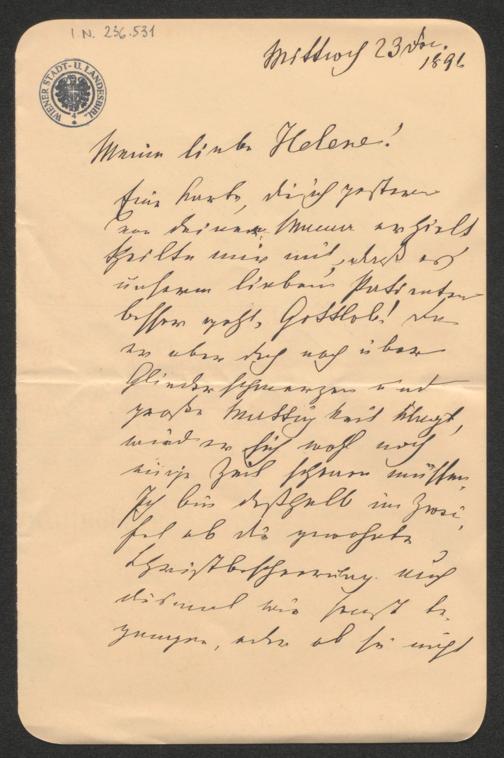 I. N. 236.531
WIENER STADT- U. LANDESBIBL.
Mittwoch 23 Dec.
1896
Meine liebe Helene!
Eine Karte, die ich gestern
von deiner Mama erhielt
theilte mir mit, daß es
unserem lieben Patienten
besser geht, Gottlob! Da
er aber doch noch über
Gliederschmerzen und
große Mattigkeit klagt,
wird er sich wohl noch
einige Zeit schonen müssen.
Ich bin deßhalb im Zwei-
fel ob die gewohnte
Christbescheerung auch
diesmal wie sonst be-
gangen, oder ob sie nicht